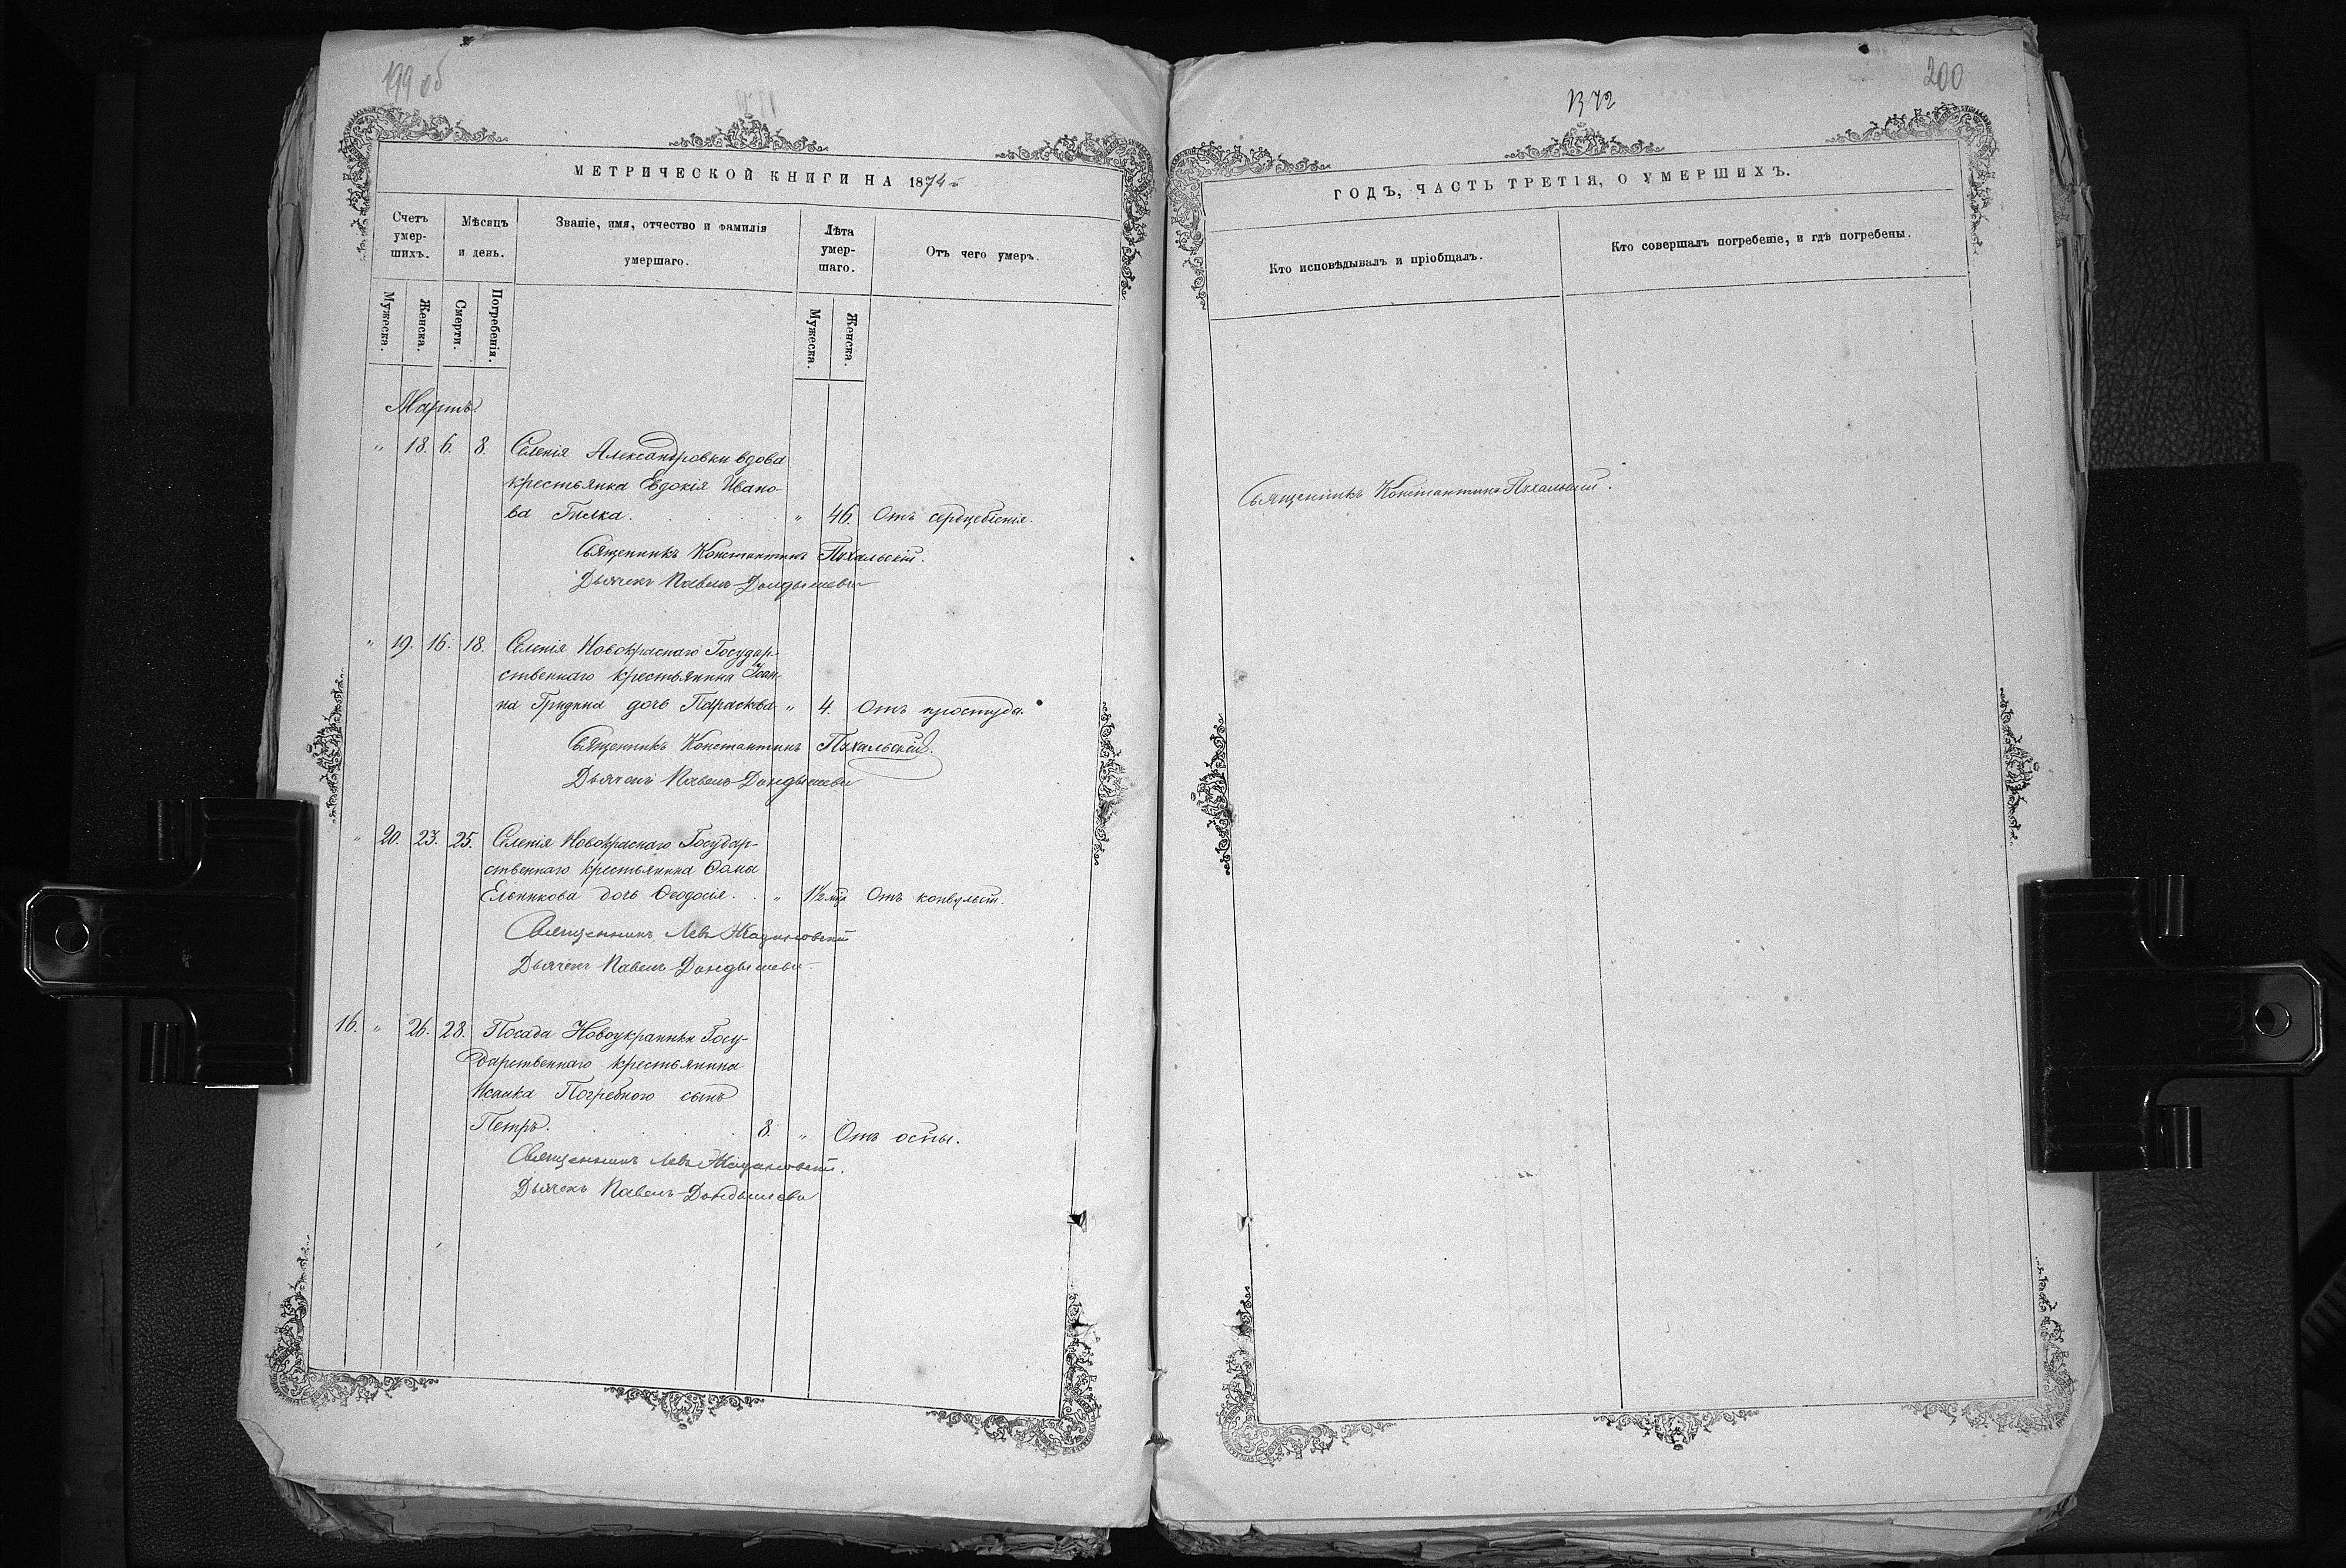 199 об
МЕТРИЧЕСКОЙ КНИГИ НА 1874 й
Счетъ умер-шихъ.
Мѣсяцъ и день.
Званіе, имя, отчество и фамилія умершаго.
Лѣта умер-шаго.
Отъ чего умеръ.
Мужеска.
Женска.
Смерти.
Погребенія.
Мужеска.
Женска.
Мартъ.
" 18. 6. 8. Селенія Александровки вдова
крестьянка Евдокія Ивано-
ва Гилка. " 46. Отъ сердцебіенія.
Священникъ Константинъ Пухальскій.
Дьячекъ Павелъ
" 19. 16. 18. Селенія Новокраснаго Государ-
ственнаго крестьянина Іоан-
на Гридина дочь Параскева " 4. Отъ простуды.
Священникъ Константинъ Пухальскій.
Дьячекъ Павелъ
" 20. 23. 25. Селенія Новокраснаго Государ-
ственнаго крестьянина Ѳомы
Ельникова дочь Ѳеодосія. " 1½ мца Отъ конвульсій.
Священникъ Левъ
Дьячекъ Павелъ
16. " 26. 28. Посада Новоукраинки Госу-
дарственнаго крестьянина
Исаака Погребного сынъ
Петръ. 8. " Отъ оспы.
Священникъ Левъ
Дьячекъ Павелъ
1372
200
ГОДЪ, ЧАСТЬ ТРЕТІЯ, О УМЕРШИХЪ.
Кто исповѣдывалъ и пріобщалъ.
Кто совершалъ погребеніе, и гдѣ погребены.
Священникъ Константинъ Пухальскій.